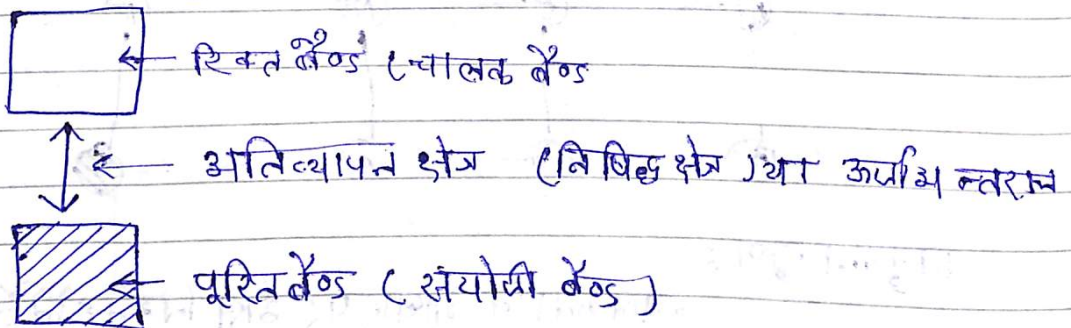 रिक्त बैण्ड (चालक बैण्ड
अतिव्यापन क्षेत्र (निषिद्ध क्षेत्र) या ऊर्जा अन्तराल
पूरित बैण्ड (संयोजी बैण्ड)